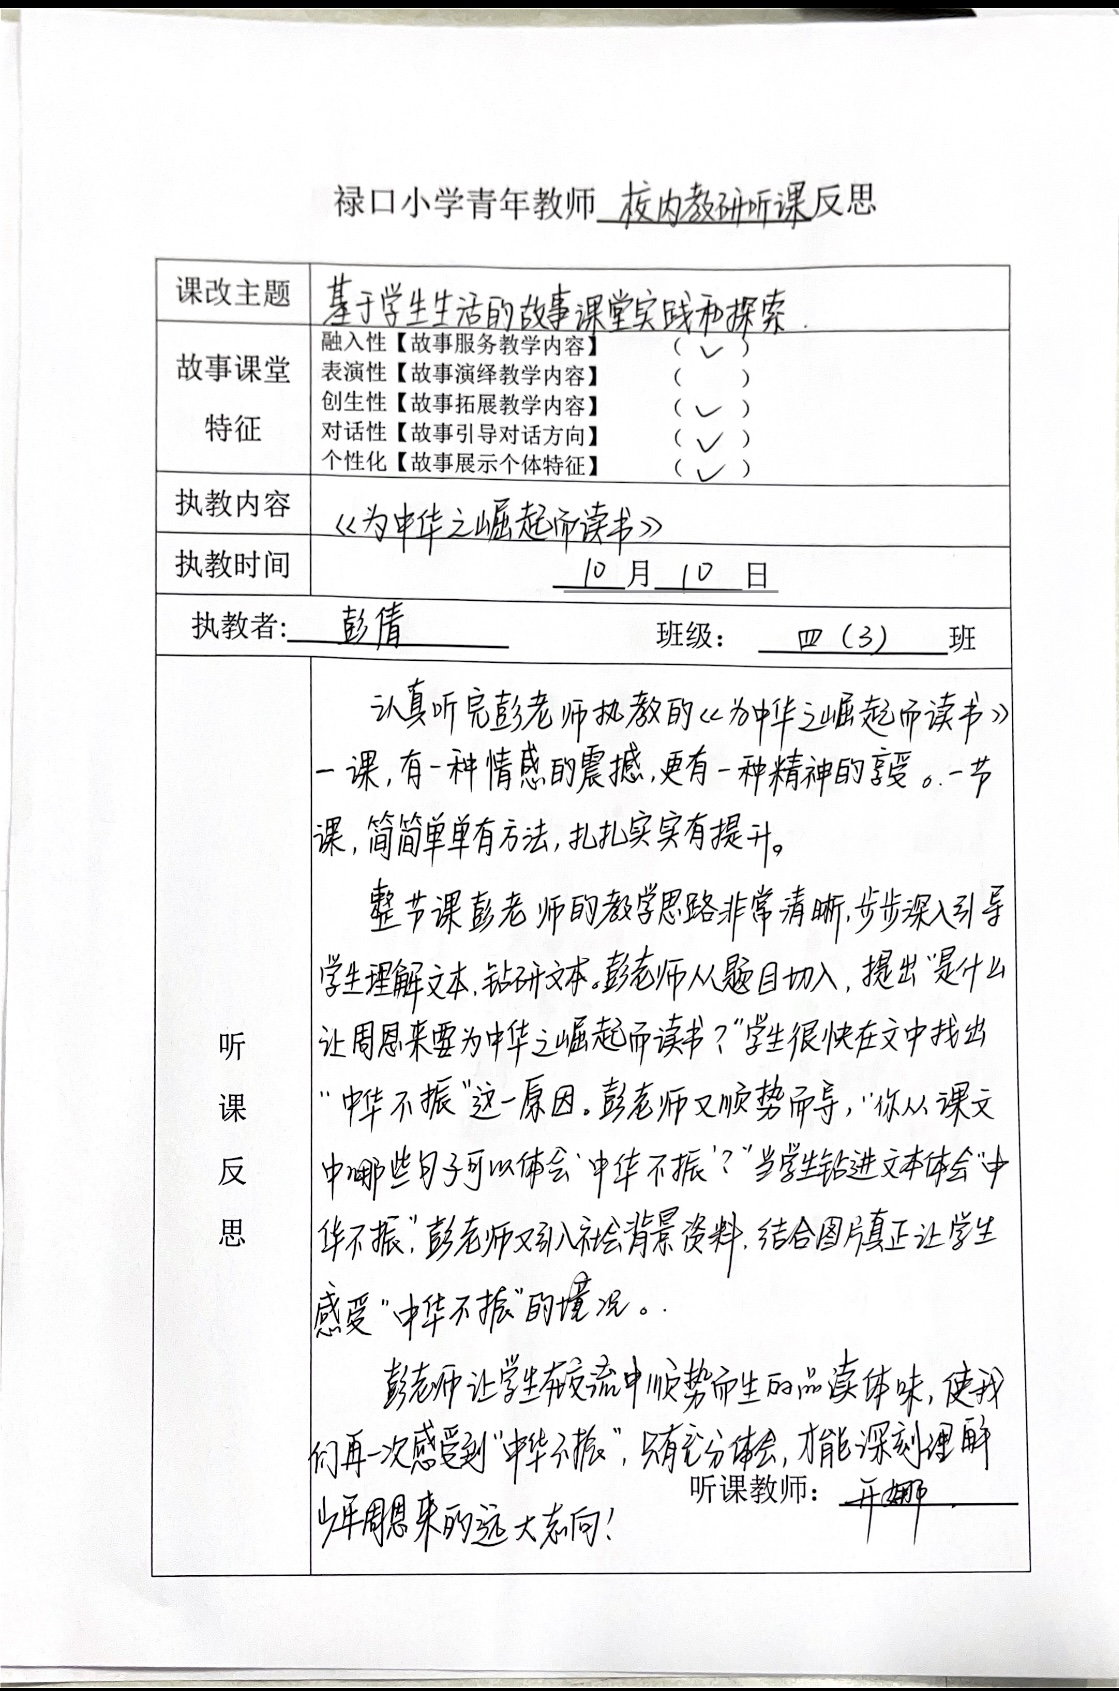 禄口小学青年教师 校内教研听课反思
课改主题 基于学生生活的故事课堂实践和探索.
故事课堂特征
融入性【故事服务教学内容】 （✓）
表演性【故事演绎教学内容】 （ ）
创生性【故事拓展教学内容】 （✓）
对话性【故事引导对话方向】 （✓）
个性化【故事展示个体特征】 （✓）
执教内容 《为中华之崛起而读书》
执教时间 10月10日
执教者: 彭倩 班级： 四（3）班
听课反思
认真听完彭老师执教的《为中华之崛起而读书》
一课,有一种情感的震撼,更有一种精神的享受。一节
课,简简单单有方法,扎扎实实有提升。
整节课彭老师的教学思路非常清晰,步步深入引导
学生理解文本,钻研文本。彭老师从题目切入,提出"是什么
让周恩来要为中华之崛起而读书？"学生很快在文中找出
"中华不振"这一原因。彭老师又顺势而导,"你从课文
中哪些句子可以体会'中华不振'？"当学生钻进文本体会"中
华不振",彭老师又引入社会背景资料,结合图片真正让学生
感受"中华不振"的境况。
彭老师让学生在交流中顺势而生的品读体味,使我
们再一次感受到"中华不振",只有充分体会,才能深刻理解
少年周恩来的远大志向！
听课教师： 娜